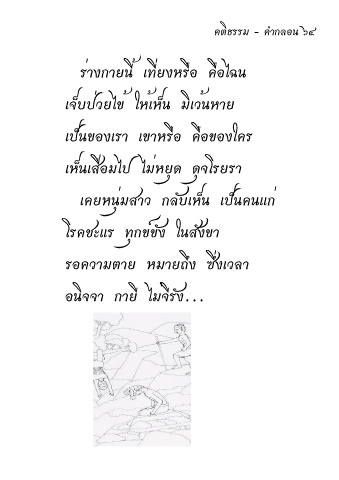 คติธรรม - คำกลอน ๖๔
ร่างกายนี้ เที่ยงหรือ คือไฉน
เจ็บป่วยไข้ ให้เห็น มิเว้นหาย
เป็นของเรา เขาหรือ คือของใคร
เห็นเสื่อมไป ไม่หยุด ดุจโรยรา
เคยหนุ่มสาว กลับเห็น เป็นคนแก่
โรคชะแร ทุกข์ขัง ในสังขา
รอความตาย หมายถึง ซึ่งเวลา
อนิจจา กายี ไม่จีรัง...